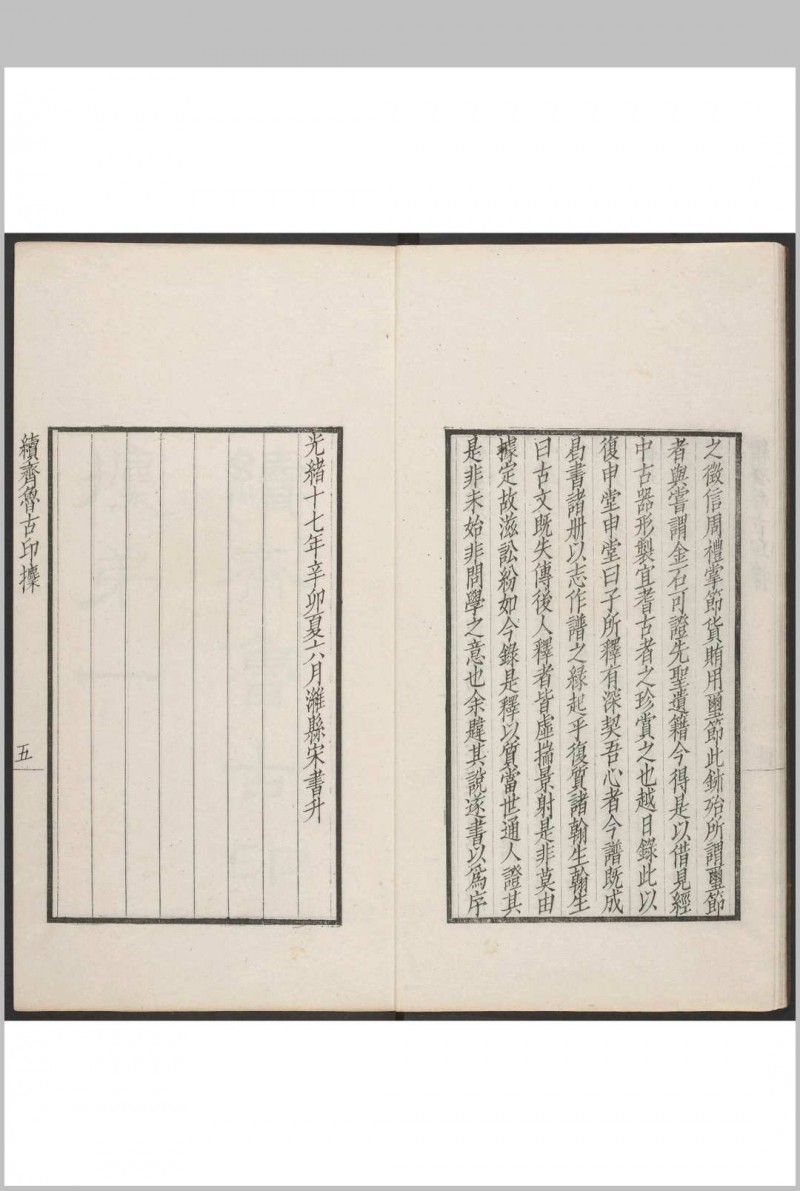 之徵信周禮掌節貨賄用璽節此鉥殆所謂璽節
者與嘗謂金石可證先聖遺籍今得是以借見經
中古器形製宜耆古者之珍賞之也越日錄此以
復申堂申堂曰子所釋有深契吾心者今譜既成
曷書諸册以志作譜之緣起乎復質諸翰生翰生
曰古文既失傳後人釋者皆虛揣景射是非莫由
據定故滋訟紛如今錄是釋以質當世通人證其
是非未始非問學之意也余韙其說遂書以爲序
光緒十七年辛卯夏六月濰縣宋書升
續齊魯古印攗
五